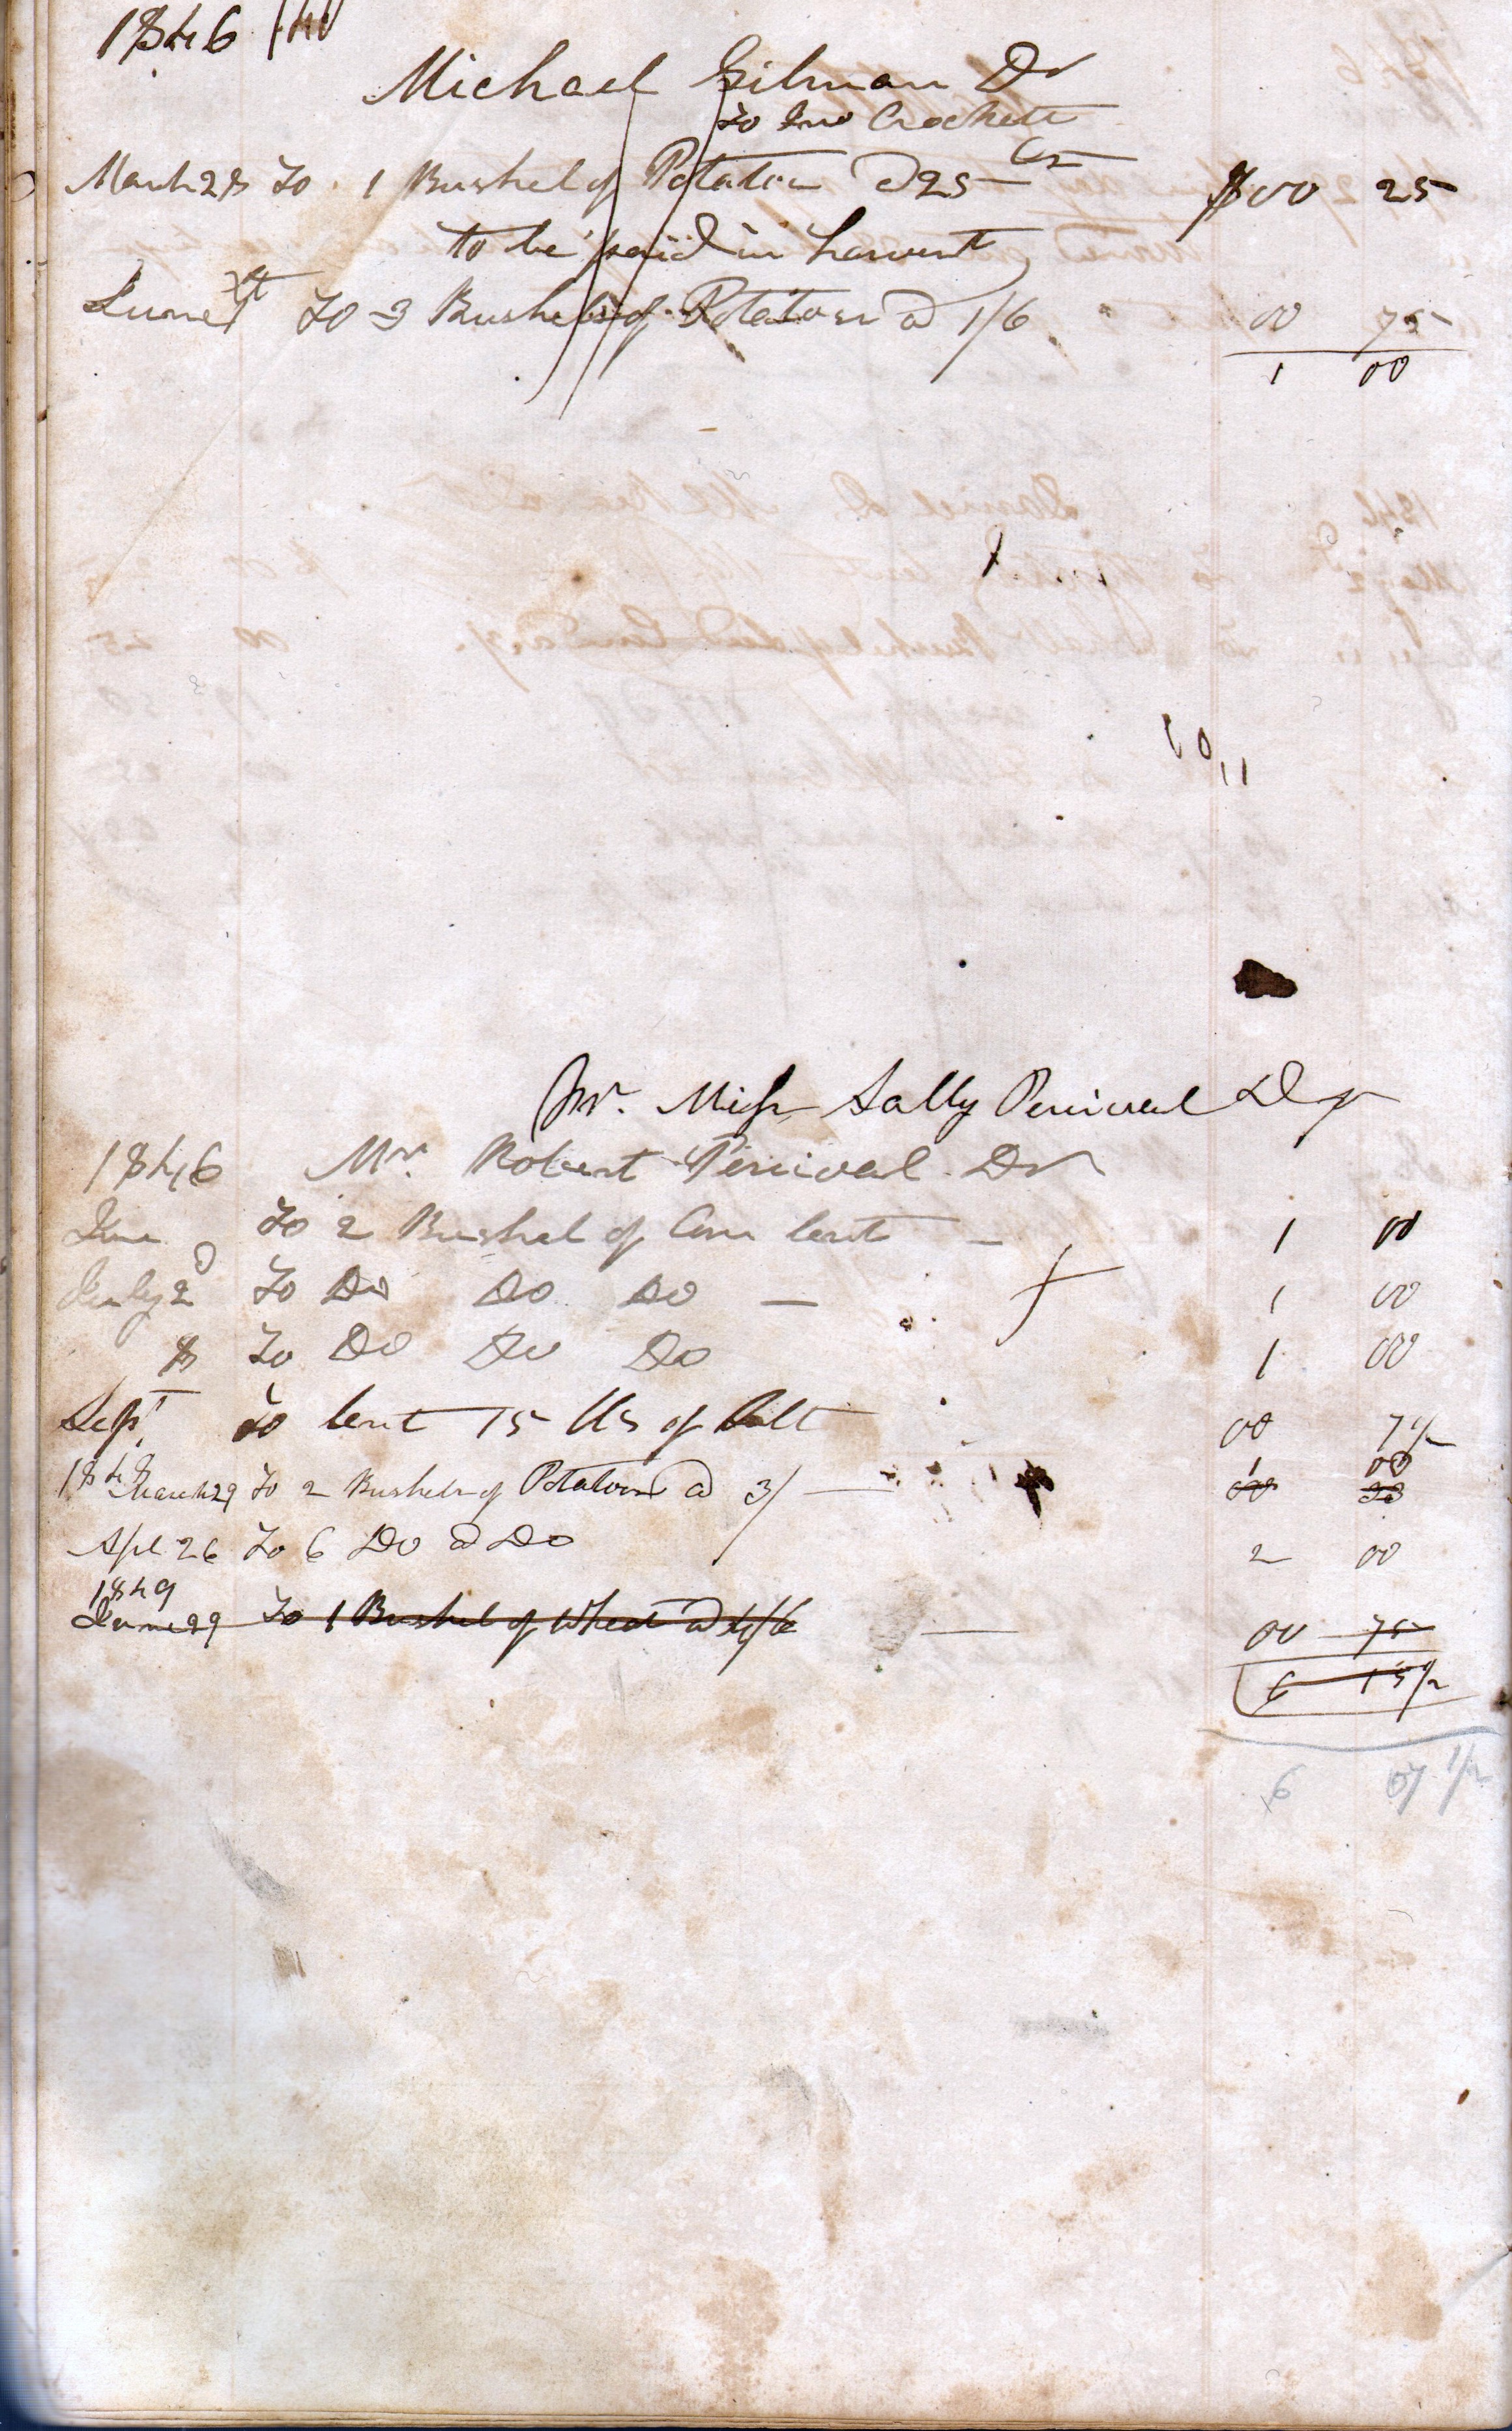 1846
Michael Gilman Dr
To Jno Crockett
March 28 To 1 Bushel of Potatoes @ 25 Cts $00 25
to be paid in harvest
June 1st To 3 Bushels of Potatoes @ 1/6 00 75
1 00
Mr. Miss Sally Percival Dr
1846 Mr. Robert Percival Dr
June To 2 Bushel of Corn lent 1 00
July 2d To Do Do Do 1 00
8 To Do Do Do 1 00
Sept. To lent 15 lbs of Salt 00 7 1/2
1848 1 00
March 29 To 2 Bushels of Potatoes @ 3/ 00
Apl 26 To 6 Do @ Do 2 00
1849
June 29 To 1 Bushel of Wheat @ 4/6 00 75
6 15 1/2
6 07 1/2